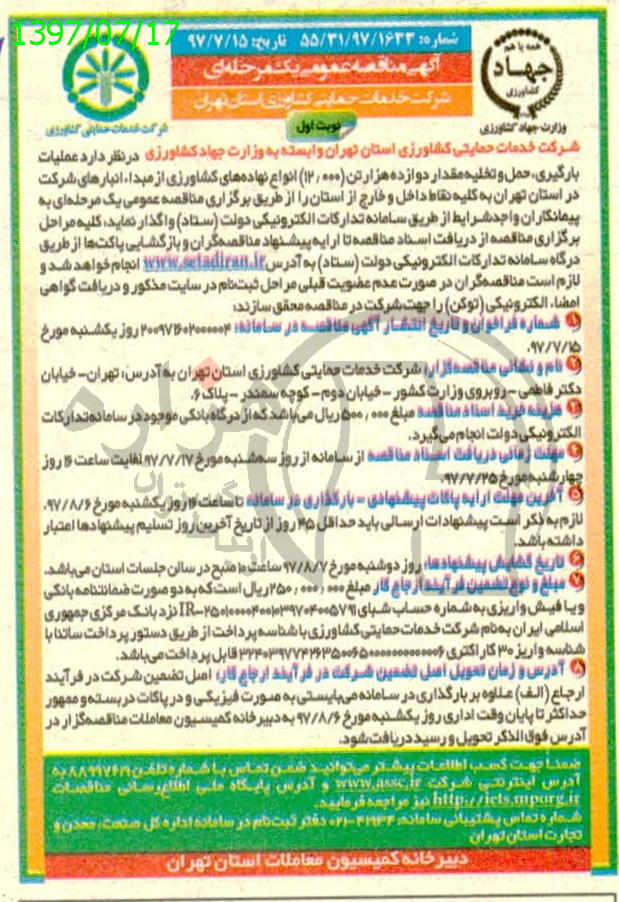 1397/07/17
شماره: ۵۵/۳۱/۹۷/۱۶۳۳ تاریخ: ۹۷/۷/۱۵
آگهی مناقصه عمومی یک مرحله‌ای
شرکت خدمات حمایتی کشاورزی استان تهران
نوبت اول
همه با هم
جهاد
کشاورزی
وزارت جهاد کشاورزی
شرکت خدمات حمایتی کشاورزی
شرکت خدمات حمایتی کشاورزی استان تهران وابسته به وزارت جهاد کشاورزی در نظر دارد عملیات
بارگیری، حمل و تخلیه مقدار دوازده هزار تن (۱۲٫۰۰۰) انواع نهاده‌های کشاورزی از مبداء انبارهای شرکت
در استان تهران به کلیه نقاط داخل و خارج از استان را از طریق برگزاری مناقصه عمومی یک مرحله‌ای به
پیمانکاران واجد شرایط از طریق سامانه تدارکات الکترونیکی دولت (ستاد) واگذار نماید، کلیه مراحل
برگزاری مناقصه از دریافت اسناد مناقصه تا ارایه پیشنهاد مناقصه‌گران و بازگشایی پاکت‌ها از طریق
درگاه سامانه تدارکات الکترونیکی دولت (ستاد) به آدرس www.setadiran.ir انجام خواهد شد و
لازم است مناقصه‌گران در صورت عدم عضویت قبلی مراحل ثبت‌نام در سایت مذکور و دریافت گواهی
امضاء الکترونیکی (توکن) را جهت شرکت در مناقصه محقق سازند:
۱ شماره فراخوان و تاریخ انتشار آگهی مناقصه در سامانه: ۲۰۰۹۷۱۶۰۲۰۰۰۰۰۴ روز یکشنبه مورخ
۹۷/۷/۱۵.
۲ نام و نشانی مناقصه‌گزار: شرکت خدمات حمایتی کشاورزی استان تهران به آدرس: تهران- خیابان
دکتر فاطمی - روبروی وزارت کشور - خیابان دوم - کوچه سمندر - پلاک ۶.
۳ هزینه خرید اسناد مناقصه مبلغ ۵۰۰٫۰۰۰ ریال می‌باشد که از درگاه بانکی موجود در سامانه تدارکات
الکترونیکی دولت انجام می‌گیرد.
۴ مهلت زمانی دریافت اسناد مناقصه از سامانه از روز سه‌شنبه مورخ ۹۷/۷/۱۷ لغایت ساعت ۱۶ روز
چهارشنبه مورخ ۹۷/۷/۲۵.
۵ آخرین مهلت ارایه پاکات پیشنهادی - بارگذاری در سامانه تا ساعت ۱۶ روز یکشنبه مورخ ۹۷/۸/۶.
لازم به ذکر است پیشنهادات ارسالی باید حداقل ۴۵ روز از تاریخ آخرین روز تسلیم پیشنهادها اعتبار
داشته باشد.
۶ تاریخ گشایش پیشنهادها: روز دوشنبه مورخ ۹۷/۸/۷ ساعت ۱۰ صبح در سالن جلسات استان می‌باشد.
۷ مبلغ و نوع تضمین فرآیند ارجاع کار مبلغ ۲۵۰٫۰۰۰٫۰۰۰ ریال است که به دو صورت ضمانتنامه بانکی
و یا فیش واریزی به شماره حساب شبای نزد بانک مرکزی جمهوری
اسلامی ایران به نام شرکت خدمات حمایتی کشاورزی با شناسه پرداخت از طریق دستور پرداخت ساتنا با
شناسه واریز ۳۰ کاراکتری قابل پرداخت می‌باشد.
۸ آدرس و زمان تحویل اصل تضمین شرکت در فرآیند ارجاع کار: اصل تضمین شرکت در فرآیند
ارجاع (الف) علاوه بر بارگذاری در سامانه می‌بایستی به صورت فیزیکی و در پاکات دربسته و ممهور
حداکثر تا پایان وقت اداری روز یکشنبه مورخ ۹۷/۸/۶ به دبیرخانه کمیسیون معاملات مناقصه‌گزار در
آدرس فوق‌الذکر تحویل و رسید دریافت شود.
ضمناً جهت کسب اطلاعات بیشتر می‌توانید ضمن تماس با شماره تلفن ۸۸۹۹۷۶۱۹ به
آدرس اینترنتی شرکت www.assc.ir و آدرس پایگاه ملی اطلاع‌رسانی مناقصات
http://iets.mporg.ir نیز مراجعه فرمایید.
شماره تماس پشتیبانی سامانه: ۴۱۹۳۴-۰۲۱ دفتر ثبت‌نام در سامانه اداره کل صنعت، معدن و
تجارت استان تهران
دبیرخانه کمیسیون معاملات استان تهران